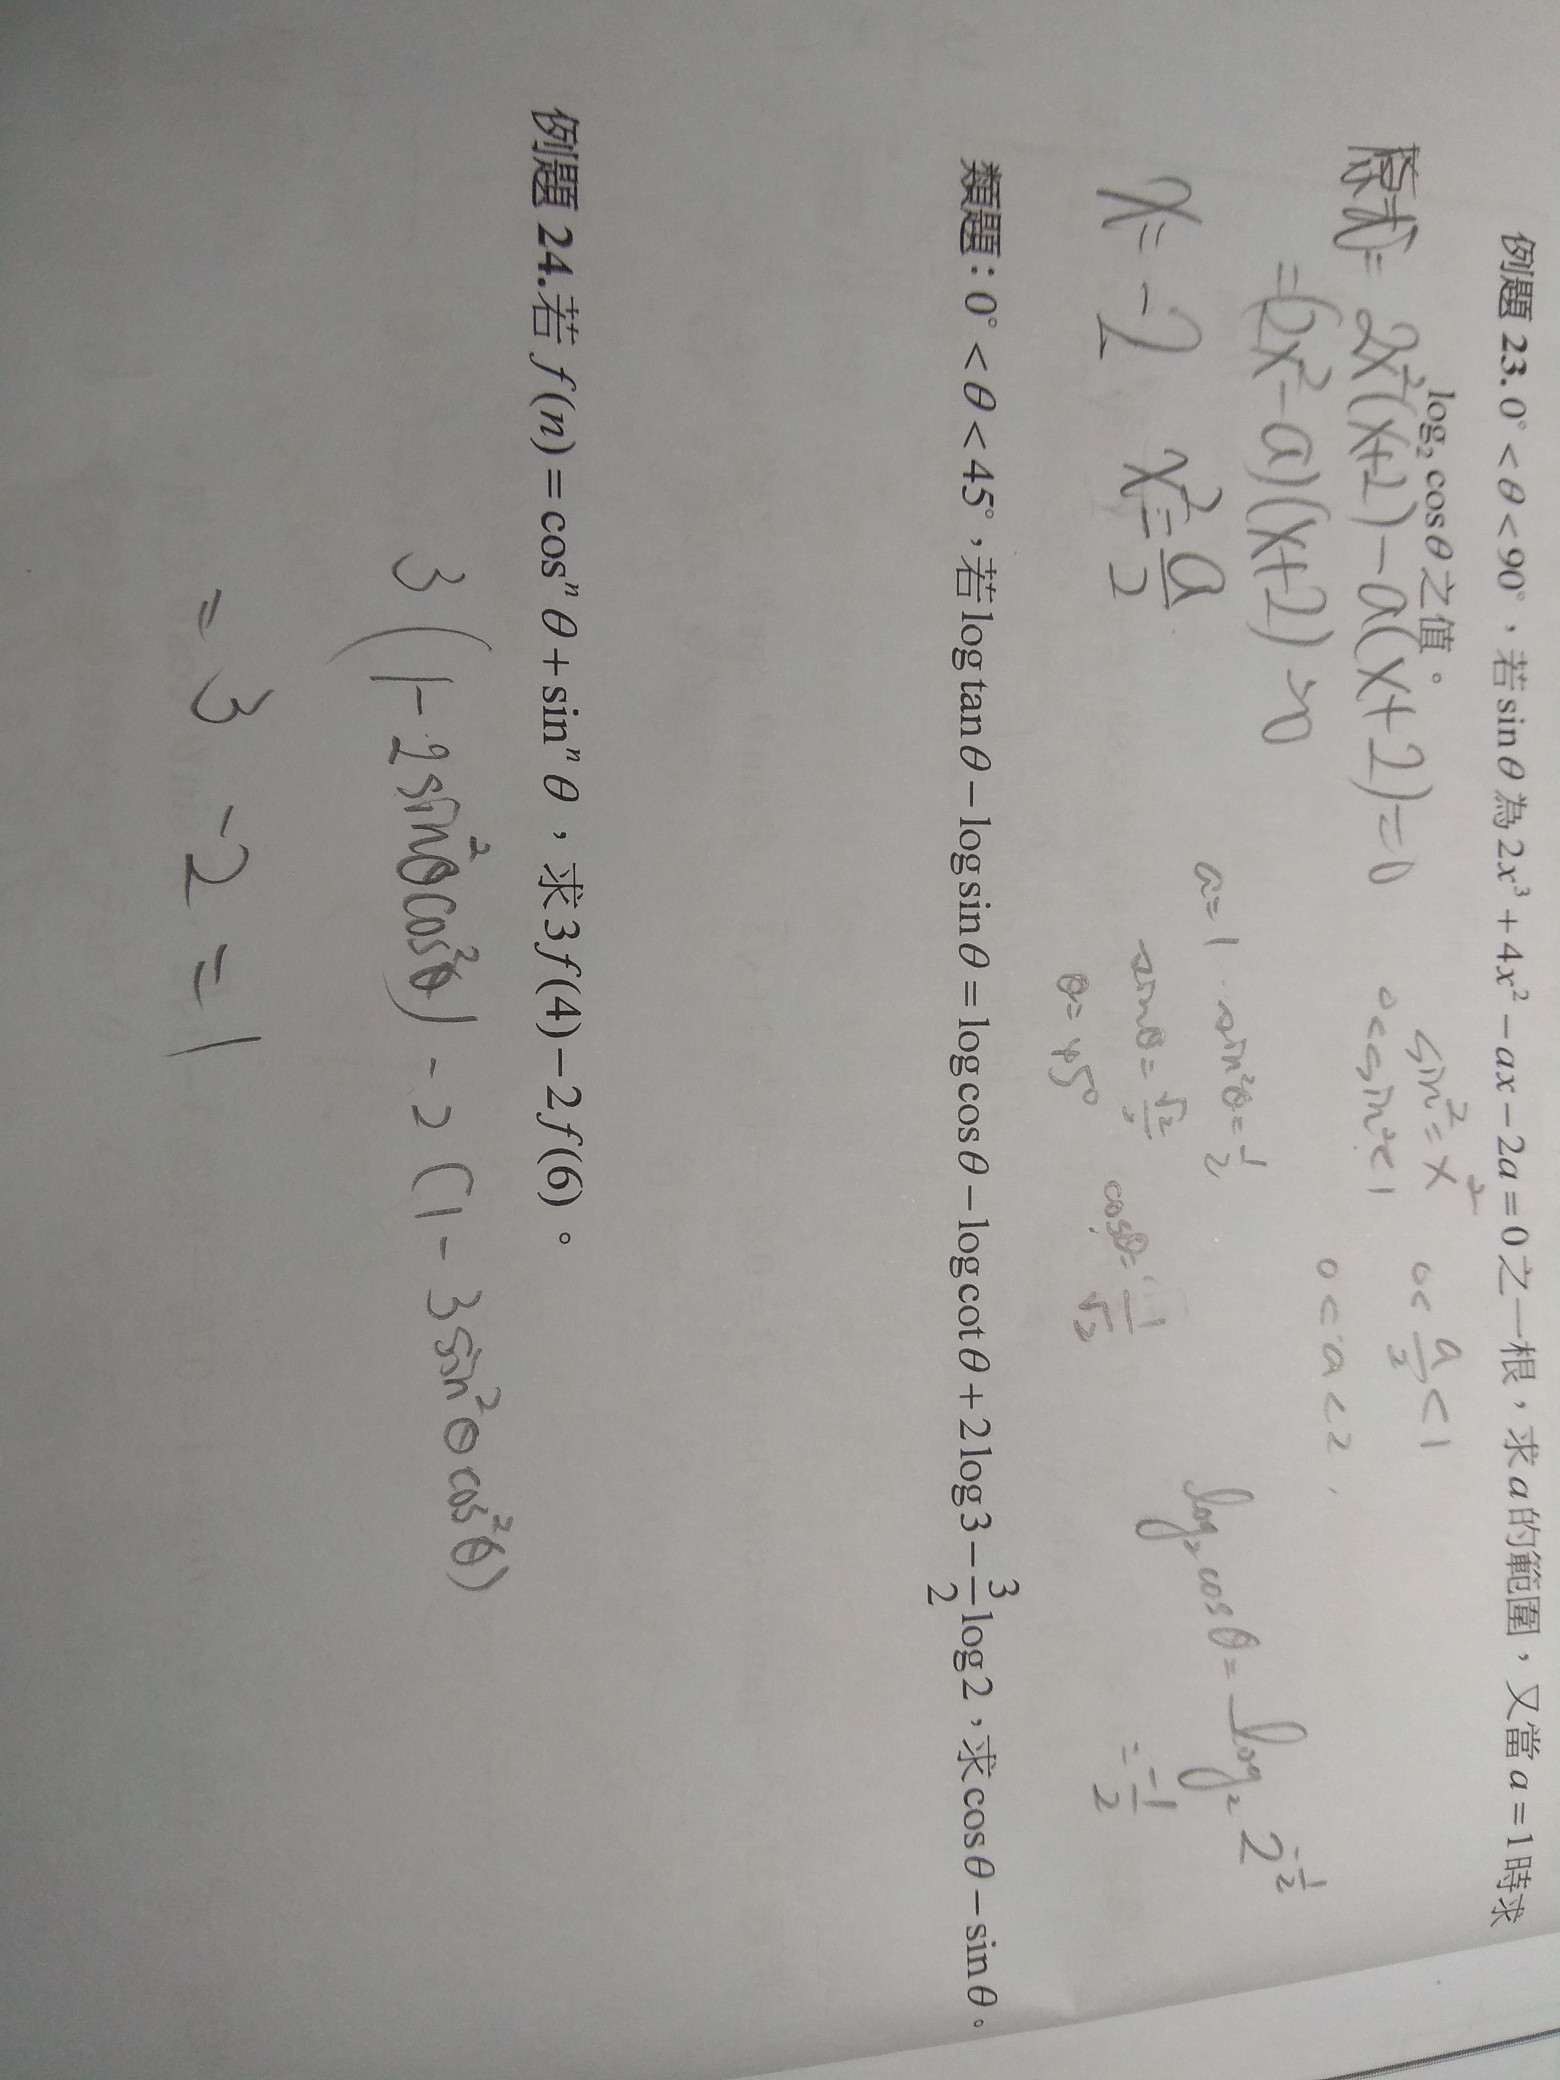 例題 23. 0° < θ < 90°，若 sin θ 為 2x³ + 4x² − ax − 2a = 0 之一根，求 a 的範圍，又當 a = 1 時求
log₂ cos θ 之值。
原式 = 2x²(x+2) − a(x+2) = 0
sin² = x²
0 < a/2 < 1
0 < sin² < 1
0 < a < 2
= (2x² − a)(x+2) = 0
x = −2
x² = a/2
a = 1
sin²θ = 1/2
sinθ = √2/2
cosθ = 1/√2
θ = 45°
log₂ cosθ = log₂ 2^(−1/2)
= −1/2
類題：0° < θ < 45°，若 log tan θ − log sin θ = log cos θ − log cot θ + 2 log 3 − 3/2 log 2，求 cos θ − sin θ。
例題 24. 若 f(n) = cosⁿ θ + sinⁿ θ，求 3f(4) − 2f(6)。
3(1 − 2sin²θcos²θ) − 2(1 − 3sin²θcos²θ)
= 3 − 2 = 1